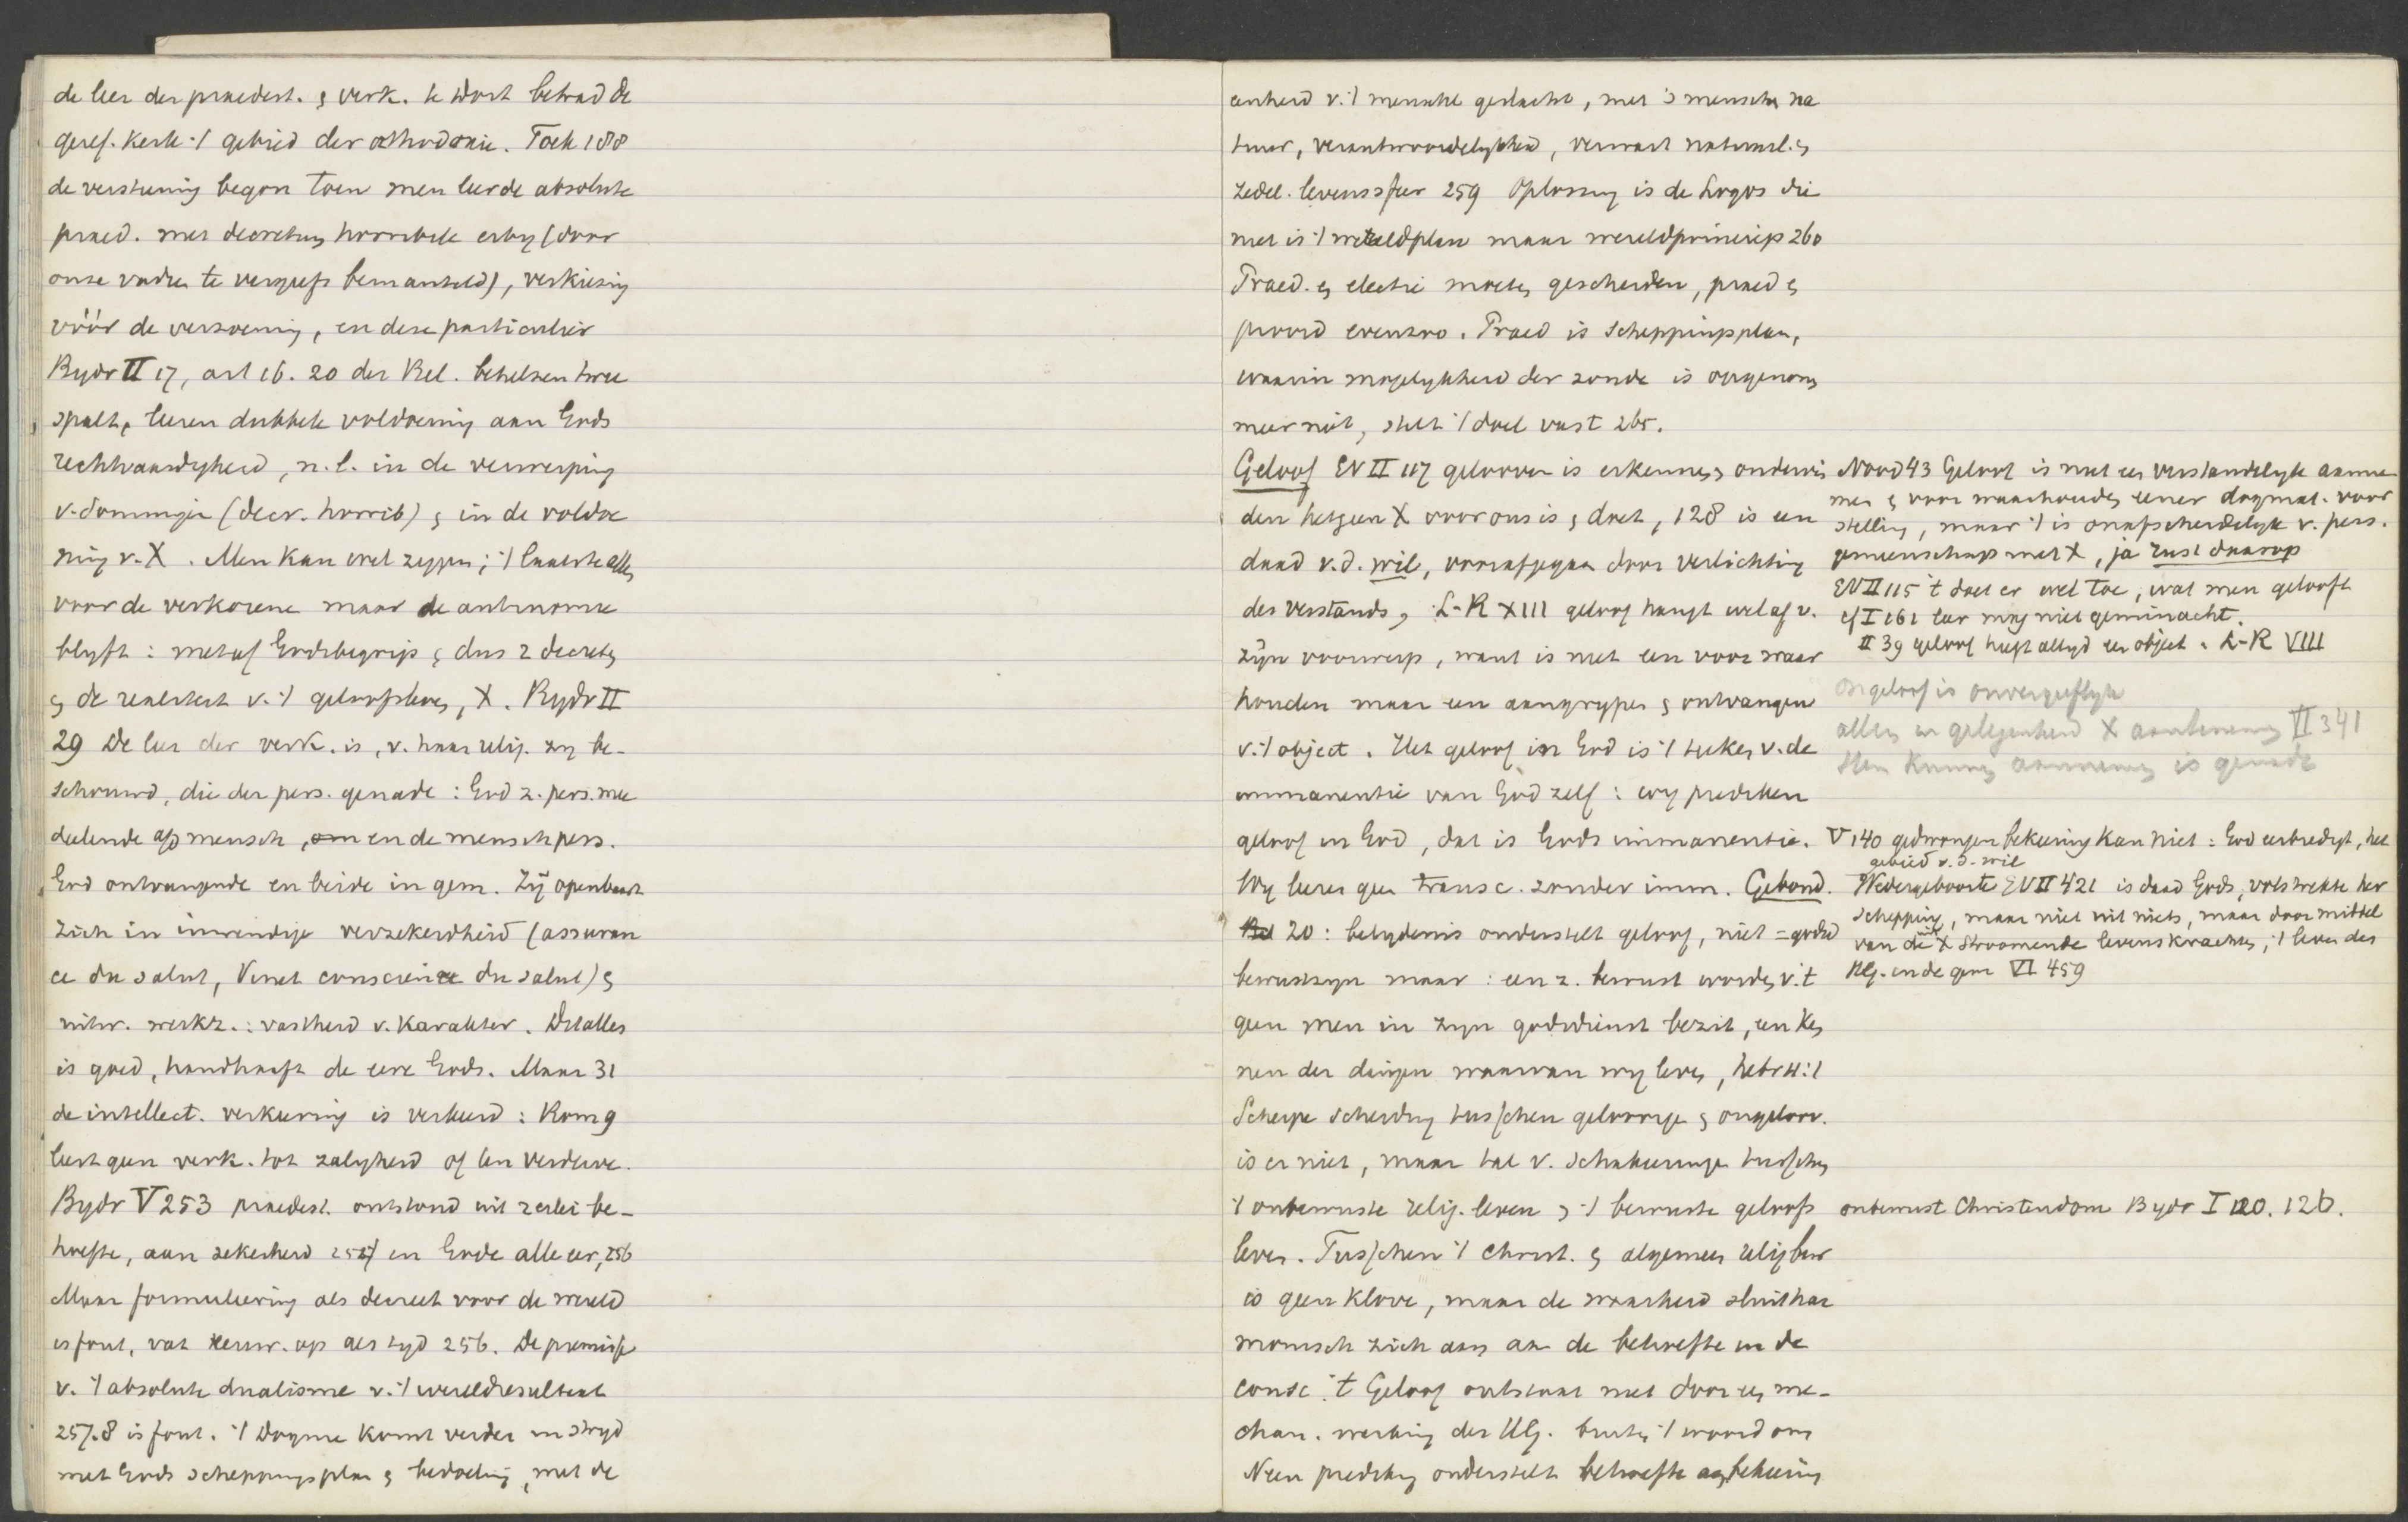 de leer der praedest. & verk. te dort betrad de
geref. kerk 't gebied der orthodoxie. Toek 188
de verstening begon toen men leerde absolute
praed. met decretum horribile erby (door
onze vadren te vergeefs bemanteld), verkiezing
vóór de verzoening, en deze particulier
Bydr II 17, art 16. 20 der Bel. behelzen twee
spalt, leeren dubbele voldoening aan Gods
rechtvaardigheid, n.l. in de verwerping
v. sommige (decr. horrib) & in de voldoe
ning v. X. Men kan wel zeggen; 't laatste alles
voor de verkorene maar de antinomie
blyft: met of Godsbegrip & dus 2 decreten
& de realiteit v. 't geloofsleven, X. Bydr II
29 De leer der verk. is, v. haar relig. zy be-
schouwd, die der pers. genade: God z. pers. mee
deelende a/d mensch, en de mensch pers.
God ontvangende en beide in gem. Zy openbaart
zich in inwendige verzekerdheid (assuran
ce du salut, Vinet conscience du salut) &
uitw. werkz.: vastheid v. karakter. Dit alles
is goed, handhaaft de eere Gods. Maar 31
de intellect. verkeering is verkeerd: Rom 9
leert geen verk. tot zalygheid of ten verderve.
Bydr V 253 praedest. ontstond uit 2erlei be-
hoefte, aan zekerheid 255/ en Gode alle eer, 256
Maar formuleering als decreet voor de wereld
is fout, vat eeuw. op als tyd 256. De premisse
v. 't absolute dualisme v. 't wereldresultaat
257.8 is fout. 't Dogma komt verder in stryd
met Gods scheppingsplan & bedoeling, met de
eenheid v. 't menschel geslacht, met 's menschen na
tuur, verantwoordelykheid, verwart natuurl. &
zedel. levenssfeer 259 Oplossing is de Logos die
niet is 't wereldplan maar wereldprincip 260
Praed. & electie moeten gescheiden, praed &
provid evenzoo. Praed is scheppingsplan,
waarin mogelykheid der zonde is opgenomen
meer niet, stelt 't doel vast 265.
Geloof EV II 117 gelooven is erkennen & ondervin
den hetgeen X voor ons is & doet, 128 is een
daad v.d. wil, voorafgegaan door verlichting
des verstands, L-R XIII geloof hangt wel af v.
zyn voorwerp, want is niet een voor waar
houden maar een aangrypen & ontvangen
v. 't object. Het geloof in God is 't teeken v. de
immanentie van God zelf: wy prediken
geloof in God, dat is Gods immanentie.
Wy leeren geen transc. zonder imm. Gebond.
20: belydenis onderstelt geloof, niet = godsd
bewustzyn maar: een z. bewust worden v. 't
geen men in zyn godsdienst bezit, een ken
nen der dingen waarvan wy leven, hebr 11:1
Scherpe scheiding tusschen geloovige & ongeloov.
is er niet, maar tal v. schakeeringen tusschen
't onbewuste relig. leven & 't bewuste geloofs
leven. Tusschen 't christ. & algemeen relig bew
is geen klove, maar de waarheid sluit har
monisch zich aan aan de behoefte in de
consc. 't Geloof ontstaat niet door een me-
chan. werking der HG. buiten 't woord om
Neen prediking onderstelt behoefte aan bekeering
Noord 43 Geloof is niet een verstandelyke aanne
men & voor waarhouden eener dogmat. voor
stelling, maar 't is onafscheidelyk v. pers.
gemeenschap met X, ja rust daarop
EV II 115 't doet er wel toe, wat men gelooft
cf I 161 leer mag niet geminacht.
II 39 geloof heeft altyd een object. L-R VIII
Ongeloof is onvergeeflyk
allen in gelegenheid X aantenemen II 341
Het kunnen aannemen is genade
V 140 gedwongen bekeering kan niet: God eerbiedigt, het
gebied v.d. wil
Wedergeboorte EV II 421 is daad Gods, volstrekte her
schepping, maar niet uit niets, maar door middel
van de uit X stroomende levenskrachten, 't leven des
HG. in de gem VI 459
onbewust Christendom Bydr I 120. 126.